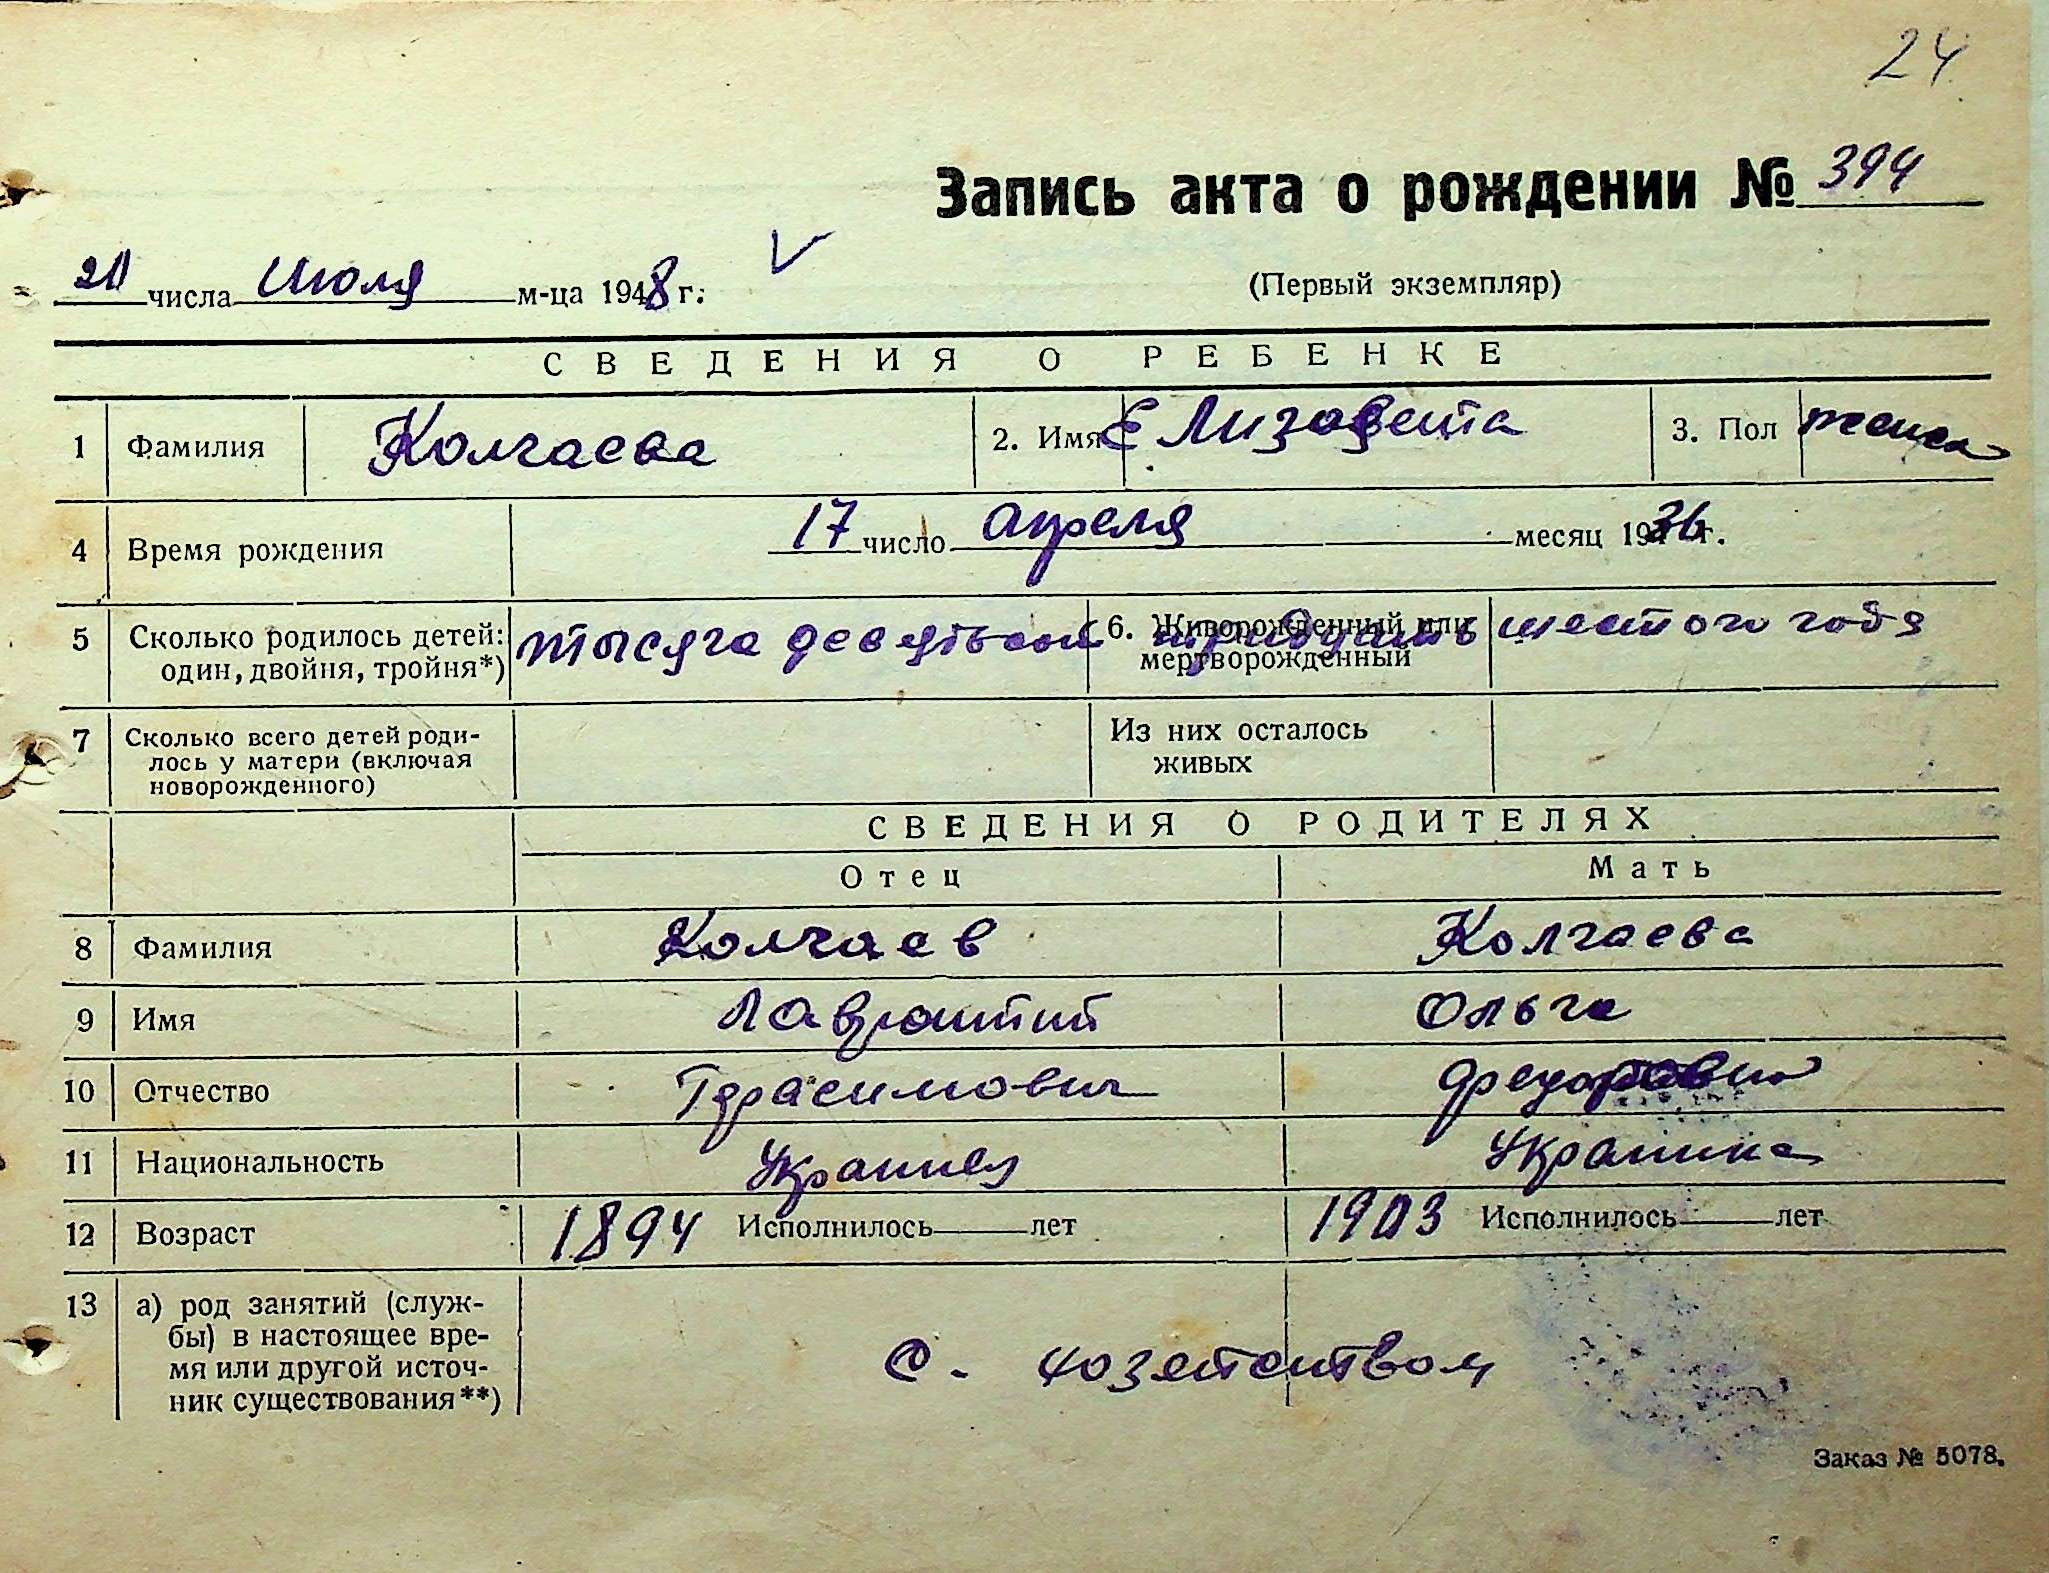 24
Запись акта о рождении № 394
20 числа Июля м-ца 1948 г.
(Первый экземпляр)
СВЕДЕНИЯ О РЕБЕНКЕ
1 Фамилия Колчаева 2. Имя Елизавета 3. Пол женск
4 Время рождения 17 число апреля месяц 1936 г.
5 Сколько родилось детей: один, двойня, тройня*) тысяча девятьсот 6. Живорожденный или мертворожденный тридцать шестого года
7 Сколько всего детей родилось у матери (включая новорожденного) Из них осталось живых
СВЕДЕНИЯ О РОДИТЕЛЯХ
Отец Мать
8 Фамилия Колчаев Колчаева
9 Имя Лаврентий Ольга
10 Отчество Герасимович Федоровна
11 Национальность Украинец Украинка
12 Возраст 1894 Исполнилось лет 1903 Исполнилось лет
13 а) род занятий (служ-
бы) в настоящее вре-
мя или другой источ-
ник существования**)
С. хозяйством
Заказ № 5078.